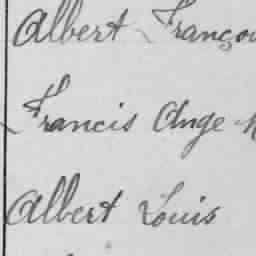 Albert Françoi
Francis Ange
Albert Louis